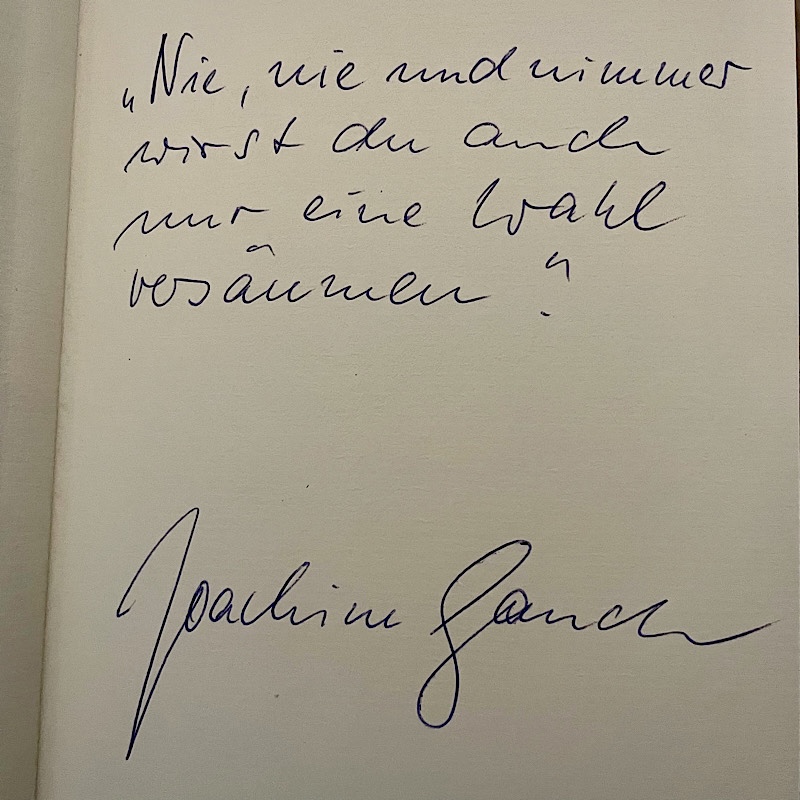 „Nie, nie und nimmer
wirst du auch
nur eine Wahl
versäumen“.
Joachim Gauck